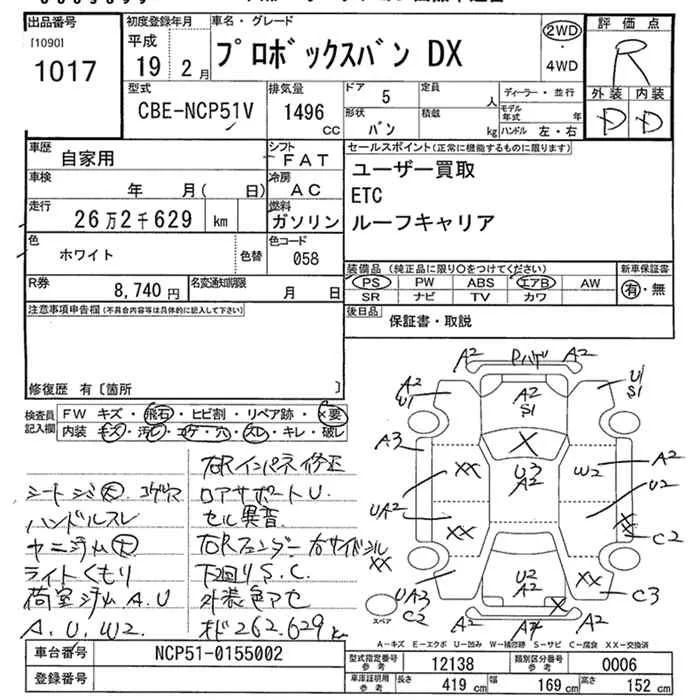 出品番号
[1090]
1017
初度登録年月
平成
19年2月
車名・グレード
プロボックスバン DX
2WD
・
4WD
評価点
R
外装 内装
D D
型式
CBE-NCP51V
排気量
1496
CC
ドア 5
定員 人
形状
バン
積載 kg
ディーラー・並行
モデル年式 年
ハンドル 左・右
車歴
自家用
シフト
FAT
車検
年 月( 日)
冷房
AC
走行
26万2千629 km
燃料
ガソリン
色
ホワイト
色替
色コード
058
R券
8,740円
名変通知期限
月 日
セールスポイント(正常に機能するものに限ります)
ユーザー買取
ETC
ルーフキャリア
装備品(純正品に限り○をつけてください)
PS PW ABS エアB AW
SR ナビ TV カワ
新車保証書
有・無
後日品
保証書・取説
注意事項申告欄(不具合内容等は具体的に記入して下さい)
修復歴 有〔箇所 〕
検査員
記入欄
FW キズ・飛石・ヒビ割・リペア跡・×要
内装 キズ・汚レ・コゲ・穴・スレ・キレ・破レ
右Rインパネ修正
シートシミ大 コゲ穴
ロアサポートU.
ハンドルスレ
セル異音
ヤニジム大
右Rフェンダー
ライトくもり
下回りS.C.
荷室ジムA.U
外装色アセ
A.U.W2.
262.629k
A2 Pハゲ A2
A2
U1
A2
S1
U1
S1
A3
X
XX
U3
A2
W2
A2
UA2
U2
XX
XX
C2
XX
UA3
C2
U2
A2
XX
C3
X
A2
A4
A2
スペア
A-キズ E-エクボ U-凹み W-補修跡 S-サビ C-腐食 XX-交換済
車台番号
NCP51-0155002
登録番号
型式指定番号
参考
12138
類別区分番号
参考
0006
車庫証明用
参考
長さ 419 cm
幅 169 cm
高さ 152 cm